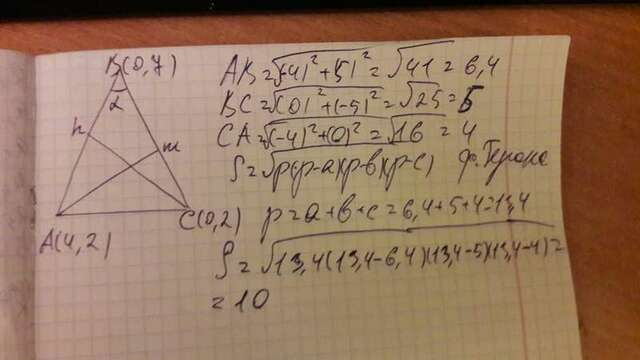 B(0,7)
α
n
m
A(4,2)
C(0,2)
AB=√(-4)²+(5)²=√41=6,4
BC=√(0)²+(-5)²=√25=5
CA=√(-4)²+(0)²=√16=4
S=√p(p-a)(p-b)(p-c) ф. Герона
p=a+b+c=6,4+5+4=13,4
S=√13,4(13,4-6,4)(13,4-5)(13,4-4)=
=10